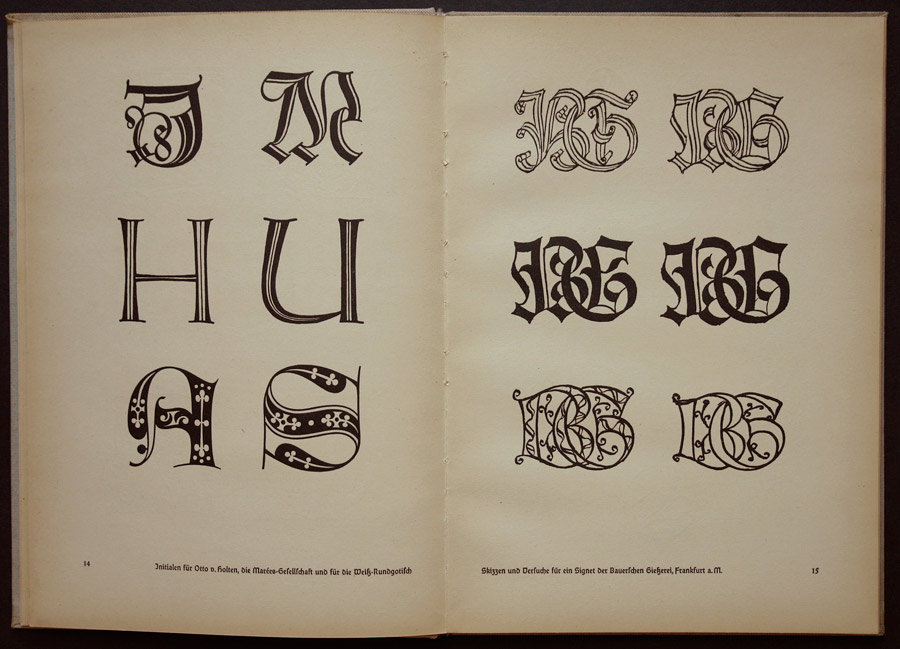 J M
H U
A S
14
Initialen für Otto v. Holten, die Marées-Gesellschaft und für die Weiß-Rundgotisch
Skizzen und Versuche für ein Signet der Bauerschen Gießerei, Frankfurt a. M.
15